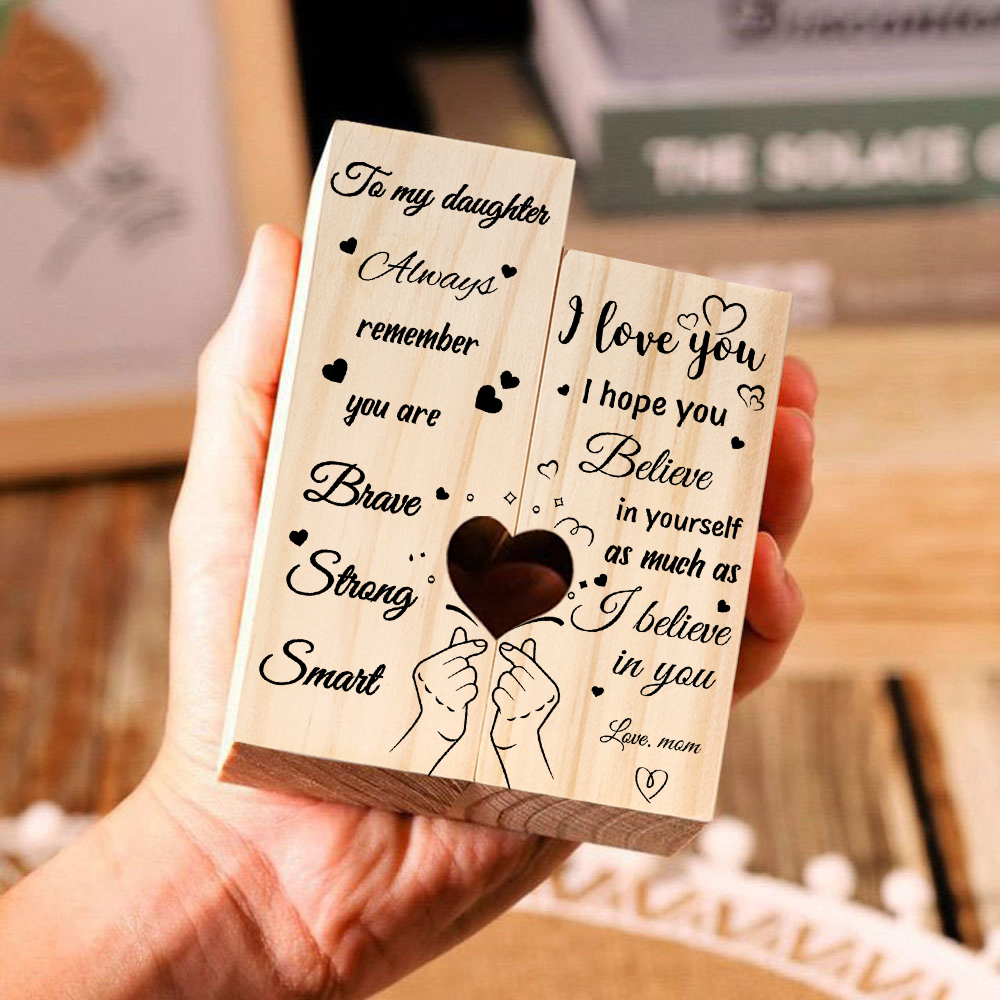 To my daughter
Always
remember
you are
Brave
Strong
Smart
I love you
I hope you
Believe
in yourself
as much as
I believe
in you
Love. mom
THE SOLACE